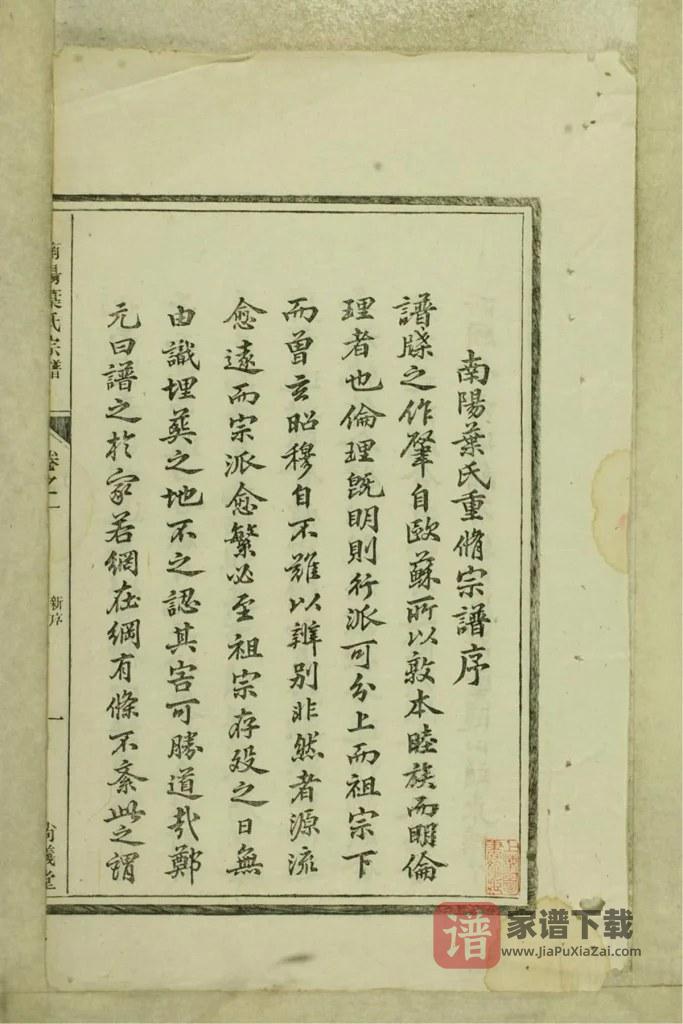 南陽葉氏重脩宗譜序
譜牒之作肇自歐蘇所以敦本睦族而明倫
理者也倫理旣明則行派可分上而祖宗下
而曾玄昭穆自不難以辨别非然者源流
愈遠而宗派愈繁必至祖宗存歿之日無
由識埋葬之地不之認其害可勝道哉鄭
元曰譜之於家若網在綱有條不紊此之謂
南陽葉氏宗譜
卷之一
新序
一
尚義堂
谱
家谱下载
www.JiaPuXiaZai.com